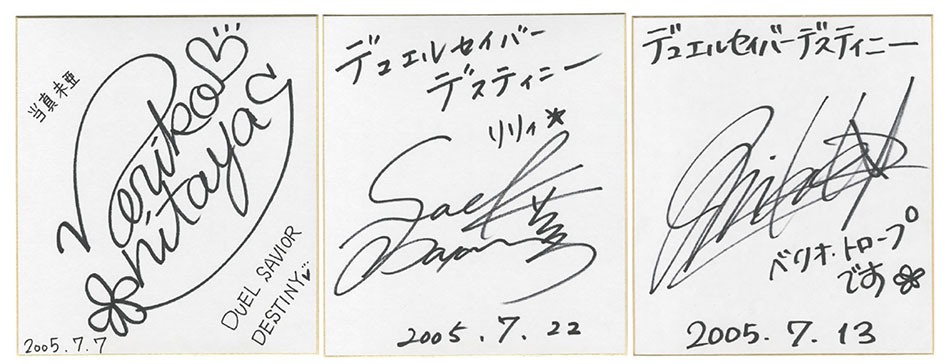 当真未亜
Noriko
Shitaya
DUEL SAVIOR
DESTINY
2005.7.7
デュエルセイバー
デスティニー
リリィ
2005.7.22
デュエルセイバーデスティニー
ベリオ・トロープ
です
2005.7.13